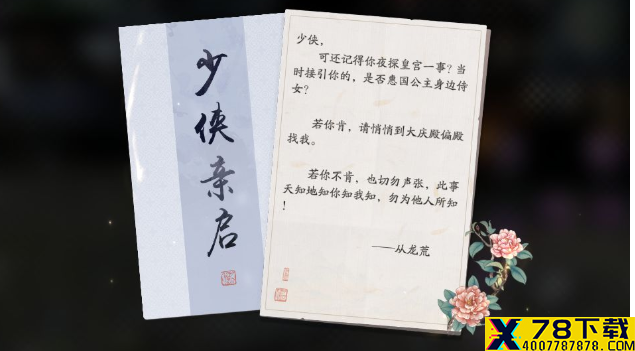 少侠亲启
少侠，
可还记得你夜探皇宫一事？当
时接引你的，是否惠国公主身边侍
女？
若你肯，请悄悄到大庆殿偏殿
找我。
若你不肯，也切勿声张，此事
天知地知你知我知，勿为他人所知
！
——从龙荒
78下载
4007787878.COM